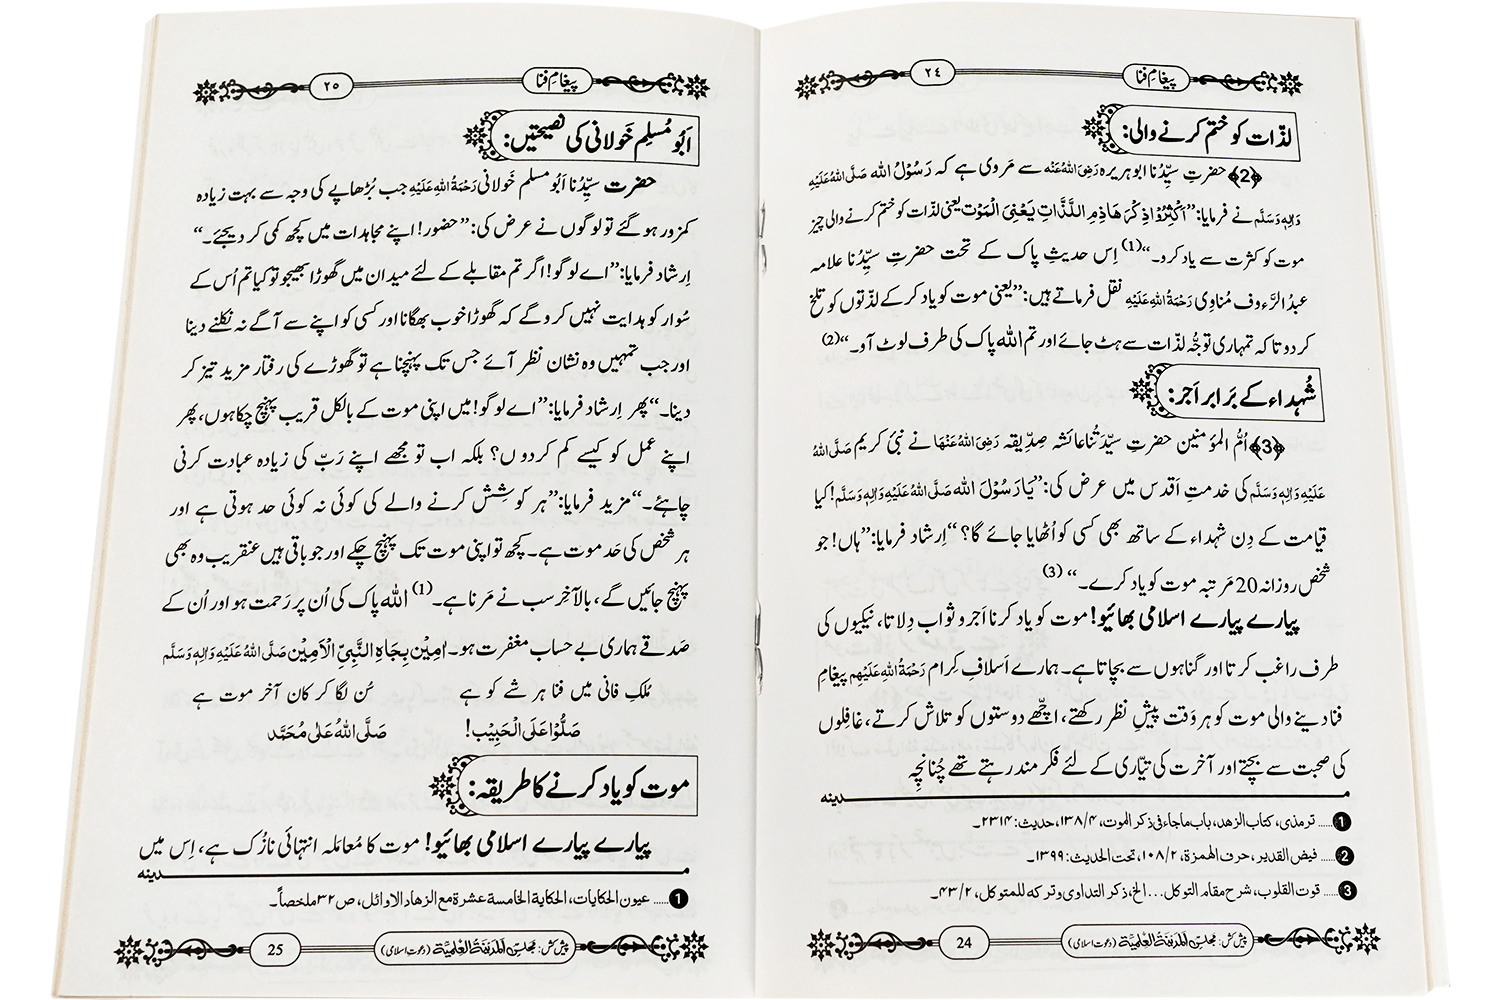 پیغامِ فنا
٢٤
لذّات کو ختم کرنے والی:
﴿2﴾ حضرتِ سیِّدُنا ابوہریرہ رَضِیَ اللہُ عَنْہ سے مَروی ہے کہ رَسُوْلُ اللہ صَلَّی اللہُ عَلَیْہِ
وَاٰلِہٖ وَسَلَّم نے فرمایا:”اَکْثِرُوْا ذِکْرَ ھَاذِمِ اللَّذَّاتِ یَعْنِی الْمَوْت یعنی لذات کو ختم کرنے والی چیز
موت کو کثرت سے یاد کرو۔“(1) اِس حدیثِ پاک کے تحت حضرتِ سیِّدُنا علامہ
عبدُ الرَّءوف مُناوِی رَحْمَۃُ اللہِ عَلَیْہِ نقل فرماتے ہیں:”یعنی موت کو یاد کرکے لذّتوں کو تلخ
کر دو تاکہ تمہاری توجُّہ لذّات سے ہٹ جائے اور تم اللہ پاک کی طرف لوٹ آو۔“(2)
شُہداء کے بَرابر اَجر:
﴿3﴾ اُمُّ المؤمنین حضرتِ سیِّدَتُنا عائشہ صِدِّیقہ رَضِیَ اللہُ عَنْہَا نے نبیٔ کریم صَلَّی اللہُ
عَلَیْہِ وَاٰلِہٖ وَسَلَّم کی خدمتِ اَقدس میں عرض کی:”یَارَسُوْلَ اللہ صَلَّی اللہُ عَلَیْہِ وَاٰلِہٖ وَسَلَّم! کیا
قیامت کے دِن شہداء کے ساتھ بھی کسی کو اُٹھایا جائے گا؟“ اِرشاد فرمایا:”ہاں! جو
شخص روزانہ 20 مَرتبہ موت کو یاد کرے۔“(3)
پیارے پیارے اسلامی بھائیو! موت کو یاد کرنا اَجر و ثواب دِلاتا، نیکیوں کی
طرف راغب کرتا اور گناہوں سے بچاتا ہے۔ ہمارے اَسلافِ کِرام رَحْمَۃُ اللہِ عَلَیْہِم پیغامِ
فنا دینے والی موت کو ہر وَقت پیشِ نظر رکھتے، اچّھے دوستوں کو تلاش کرتے، غافِلوں
کی صحبت سے بچتے اور آخرت کی تیّاری کے لئے فکر مند رہتے تھے چُنانچِہ
مدینہ
1..... ترمذی، کتاب الزھد، باب ماجاء فی ذکر الموت، ۴/۱۳۸، حدیث: ۲۳۱۴۔
2..... فیض القدیر، حرف الھمزۃ، ۲/۱۰۸، تحت الحدیث: ۱۳۹۹۔
3..... قوت القلوب، شرح مقام التوکل...الخ، ذکر التداوی وترکہ للمتوکل، ۲/۴۳۔
پیش کش: مجلس المدینۃ العلمیۃ (دعوت اسلامی)
24
پیغامِ فنا
٢٥
اَبُو مُسلِم خَولانی کی نصیحتیں:
حضرتِ سیِّدُنا اَبُو مسلم خَولانی رَحْمَۃُ اللہِ عَلَیْہِ جب بُڑھاپے کی وجہ سے بہت زیادہ
کمزور ہو گئے تو لوگوں نے عرض کی:”حضور! اپنے مجاہدات میں کچھ کمی کر دیجئے۔“
اِرشاد فرمایا:”اے لوگو! اگر تم مقابلے کے لئے میدان میں گھوڑا بھیجو تو کیا تم اُس کے
سُوار کو ہدایت نہیں کرو گے کہ گھوڑا خوب بھگانا اور کسی کو اپنے سے آگے نہ نکلنے دینا
اور جب تمہیں وہ نشان نظر آئے جس تک پہنچنا ہے تو گھوڑے کی رفتار مزید تیز کر
دینا۔“ پھر اِرشاد فرمایا:”اے لوگو! میں اپنی موت کے بالکل قریب پہنچ چکا ہوں، پھر
اپنے عمل کو کیسے کم کردوں؟ بلکہ اب تو مجھے اپنے رَبّ کی زیادہ عبادت کرنی
چاہئے۔“ مزید فرمایا:”ہر کوشِش کرنے والے کی کوئی نہ کوئی حد ہوتی ہے اور
ہر شخص کی حَد موت ہے۔ کچھ تو اپنی موت تک پہنچ چکے اور جو باقی ہیں عنقریب وہ بھی
پہنچ جائیں گے، بالآخِر سب نے مَرنا ہے۔(1) اللہ پاک کی اُن پر رَحمت ہو اور اُن کے
صَدقے ہماری بے حساب مغفرت ہو۔ اٰمِیْن بِجَاہِ النَّبِیِّ الْاَمِیْن صَلَّی اللہُ عَلَیْہِ وَاٰلِہٖ وَسَلَّم
مُلکِ فانی میں فنا ہر شے کو ہے سُن لگا کر کان آخر موت ہے
صَلُّوْا عَلَی الْحَبِیْب! صَلَّی اللہُ عَلٰی مُحَمَّد
موت کو یاد کرنے کا طریقہ:
پیارے پیارے اسلامی بھائیو! موت کا مُعامَلہ انتہائی نازُک ہے، اِس میں
مدینہ
1..... عیون الحکایات، الحکایۃ الخامسۃ عشرۃ مع الزھاد الاوائل، ص۳۲ملخصاً۔
پیش کش: مجلس المدینۃ العلمیۃ (دعوت اسلامی)
25